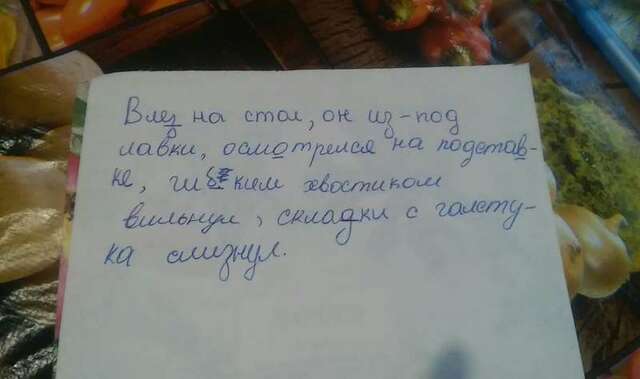 Влез на стол, он из-под
лавки, осмотрелся на подстав-
ке, гибким хвостиком
вильнул, складки с галсту-
ка слизнул.